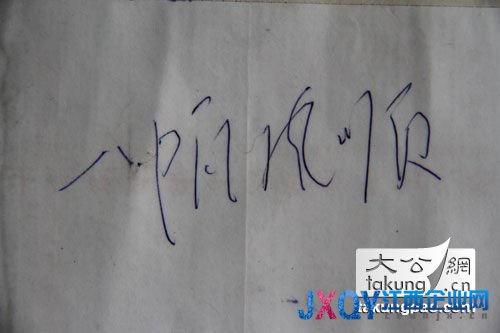 一帆风顺
大公網
takung.cn
JXQY江西企业网